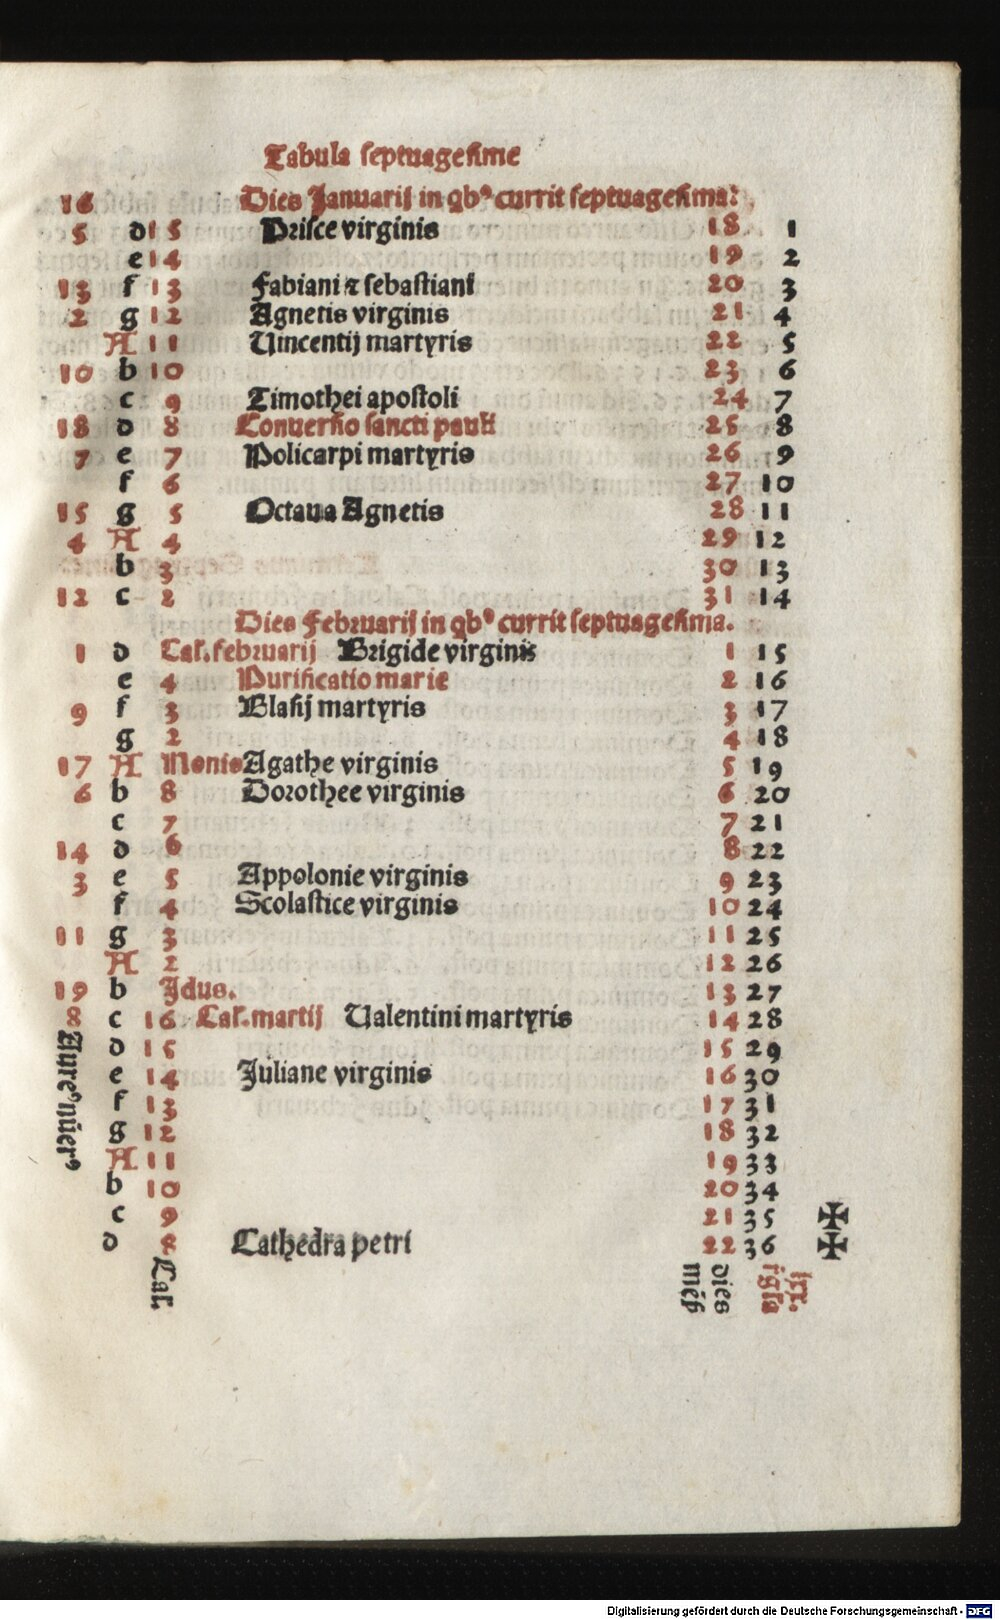 Tabula septuagesime
16 Dies Januarij in qbꝰ currit septuagesima:
5 d 15 Prisce virginis 18 1
e 14 19 2
13 f 13 Fabiani ⁊ sebastiani 20 3
2 g 12 Agnetis virginis 21 4
A 11 Vincentij martyris 22 5
10 b 10 23 6
c 9 Timothei apostoli 24 7
18 d 8 Conuersio sancti pauli 25 8
7 e 7 Policarpi martyris 26 9
f 6 27 10
15 g 5 Octaua Agnetis 28 11
4 A 4 29 12
b 3 30 13
12 c 2 31 14
Dies Februarij in qbꝰ currit septuagesima.
1 d Cal. februarij Brigide virginis 1 15
e 4 Purificatio marie 2 16
9 f 3 Blasij martyris 3 17
g 2 4 18
17 A Nonis Agathe virginis 5 19
6 b 8 Dorothee virginis 6 20
c 7 7 21
14 d 6 8 22
3 e 5 Appolonie virginis 9 23
f 4 Scolastice virginis 10 24
11 g 3 11 25
A 2 12 26
19 b Jdus. 13 27
8 c 16 Cal. martij Valentini martyris 14 28
d 15 15 29
e 14 Juliane virginis 16 30
f 13 17 31
g 12 18 32
A 11 19 33
b 10 20 34
c 9 21 35 ✠
d 8 Cathedra petri 22 36 ✠
Aureꝰ nūerꝰ
Cal.
dies
lxx.
Digitalisierung gefördert durch die Deutsche Forschungsgemeinschaft - DFG